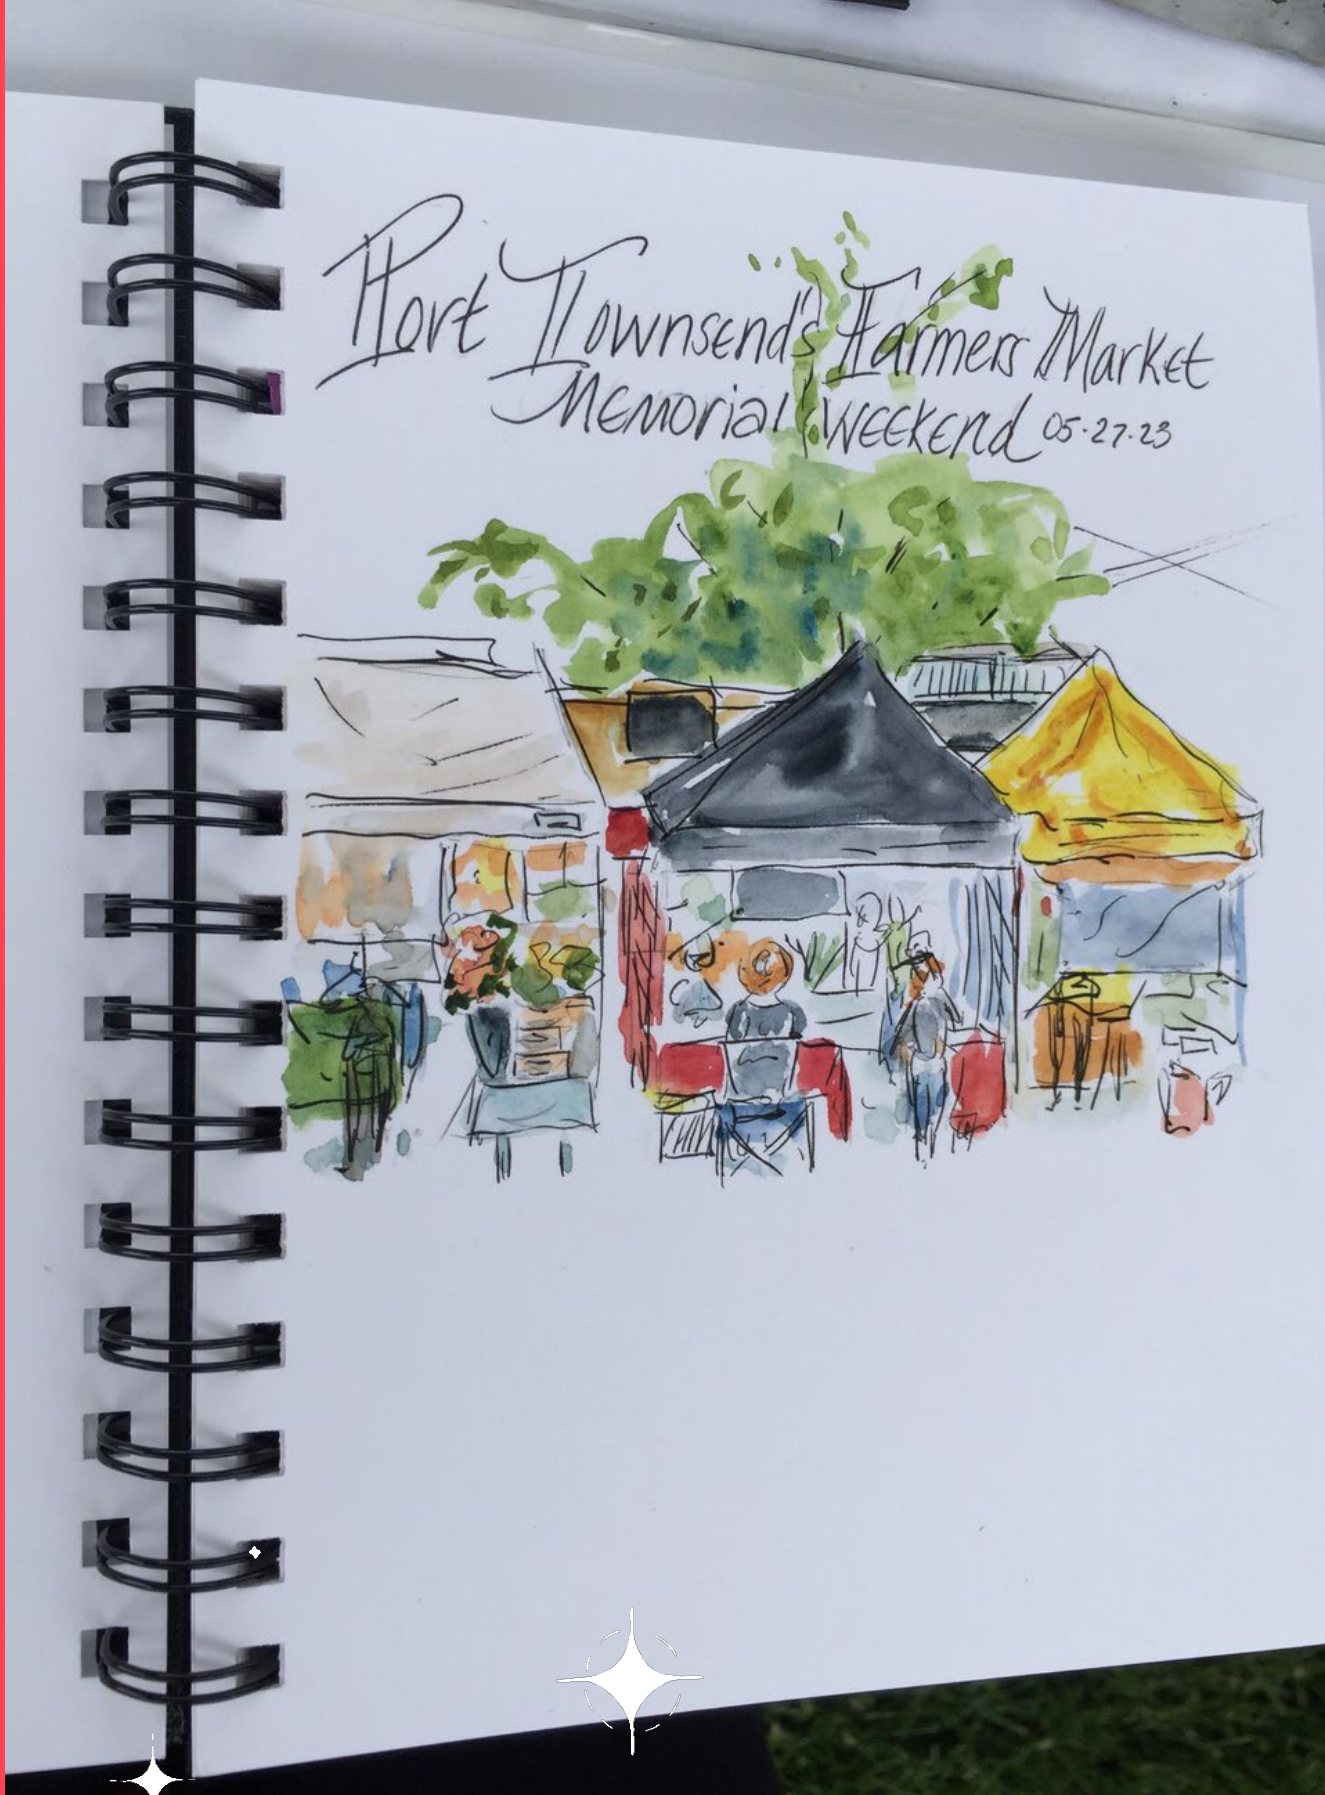 Port Townsend's Farmers Market
Memorial Weekend 05.27.23